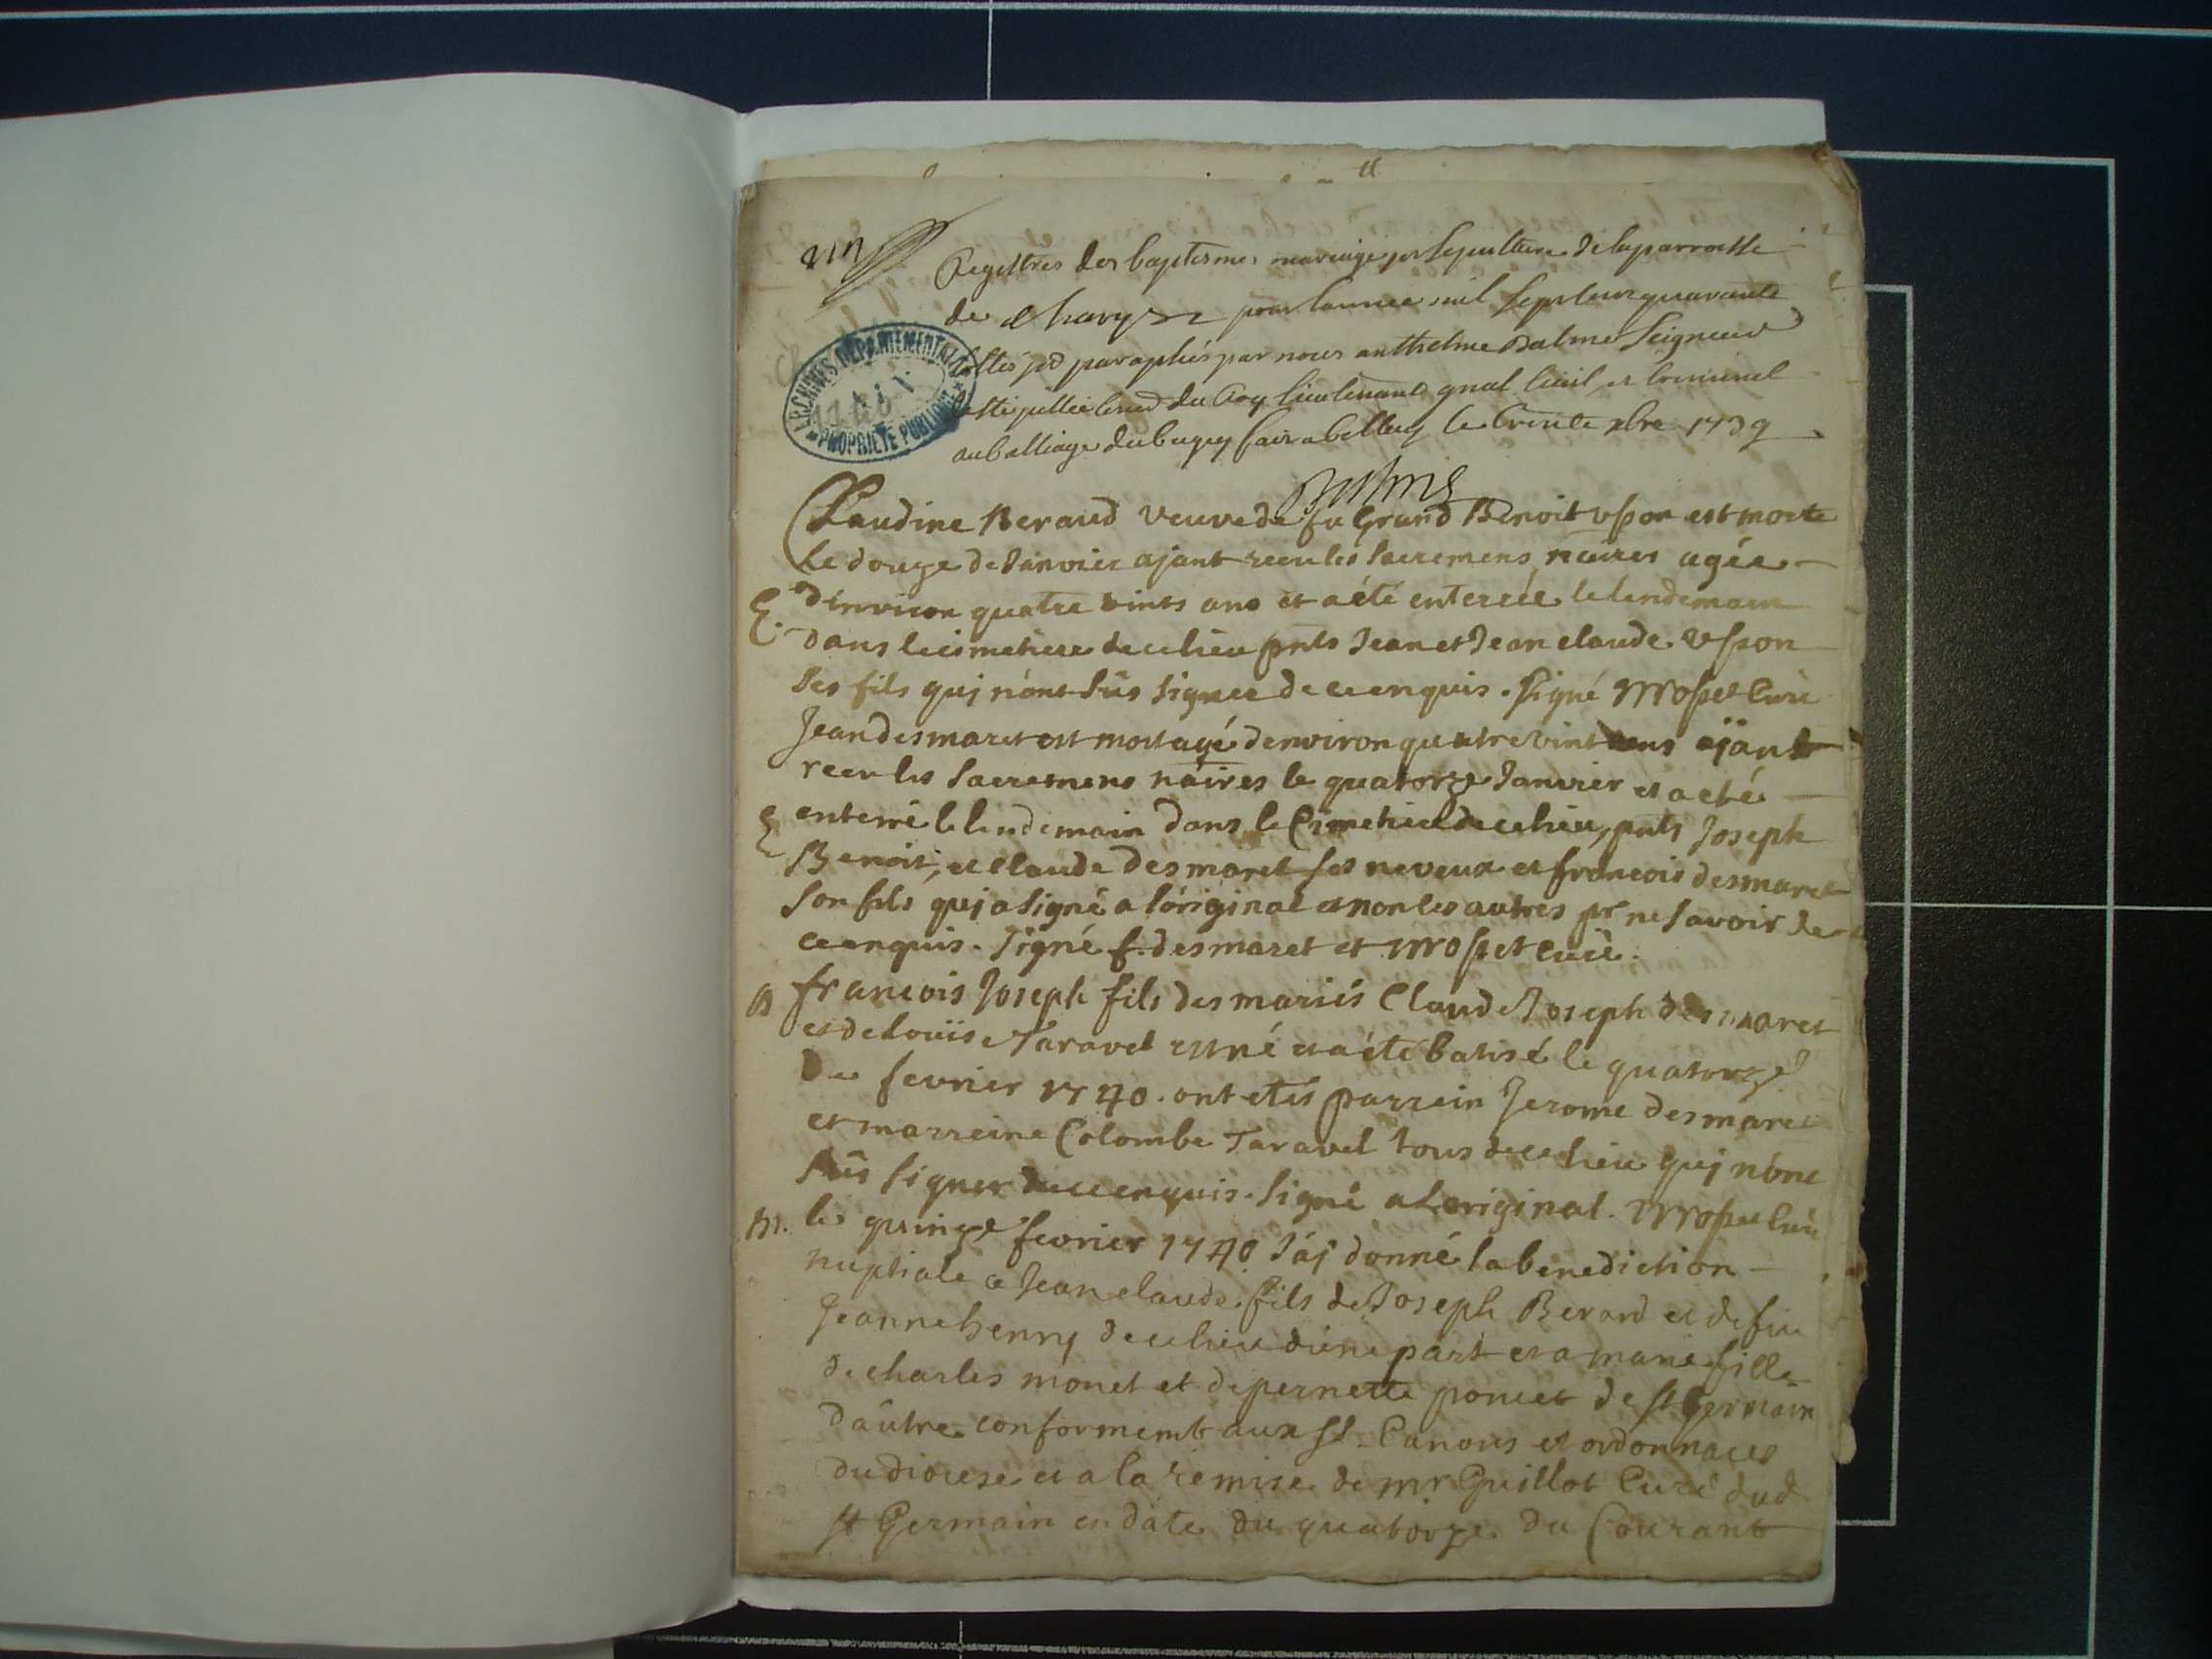 un
Registres des baptesmes mariages et sepulture de la parroisse
de pour lannee mil sept cent quarante
cottés et paraphés par nous anthelme Balme Seigneur
du Roy lieutenant gnal Civil et Criminel
au balliage du bugey fait a belley le trente xbre 1739
ARCHIVES DEPARTEMENTALES
AIN
PROPRIETE PUBLIQUE
Claudine Beraud veuve de fu Grand Benoit vspon est morte
le douze de Janvier ajant receu les sacremens nécires agée
E. d'environ quatre vints ans et a été enterrée le lendemain
dans le cimetiere de ce lieu pnts Jean et Jean claude vspon
ses fils quj n'ont sûs signer de ce enquis. signé Mosset Curé
Jean desmaret est mort agé denviron quatre vint ans ajant
receu les sacremens náires le quatorze Janvier et a eté
E enterré le lendemain dans le Cimetiere de ce lieu, pnts Joseph
Benoit, et Claude desmaret ses neveux et francois desmaret
son fils quj a signé a l'original et non les autres pr ne savoir de
ce enquis. signé f. desmaret et Mosset curé.
B francois Joseph fils des mariés Claude Joseph desmaret
et de Louïse Taravel est né et a été batisé le quatorze
De fevrier 1740. ont etés parrein Jerome desmaret
et marreine Colombe Taravel tous de ce lieu quj n'ont
sûs signer de ce enquis. signé a Loriginal. Mosset Curé
M. le quinze fevrier 1740 J'áj donné la benediction
nuptiale a Jean claude fils de Joseph Berard et de fue
Jeanne henry de ce lieu d'une part et a marie fille
de charles monet et de pernette poncet de st Germain
d'autre conformemt aux st. Canons et ordonnaces
du diocese et a la remise de mr Guillot Curé dud
st Germain en date du quatorze du Courant